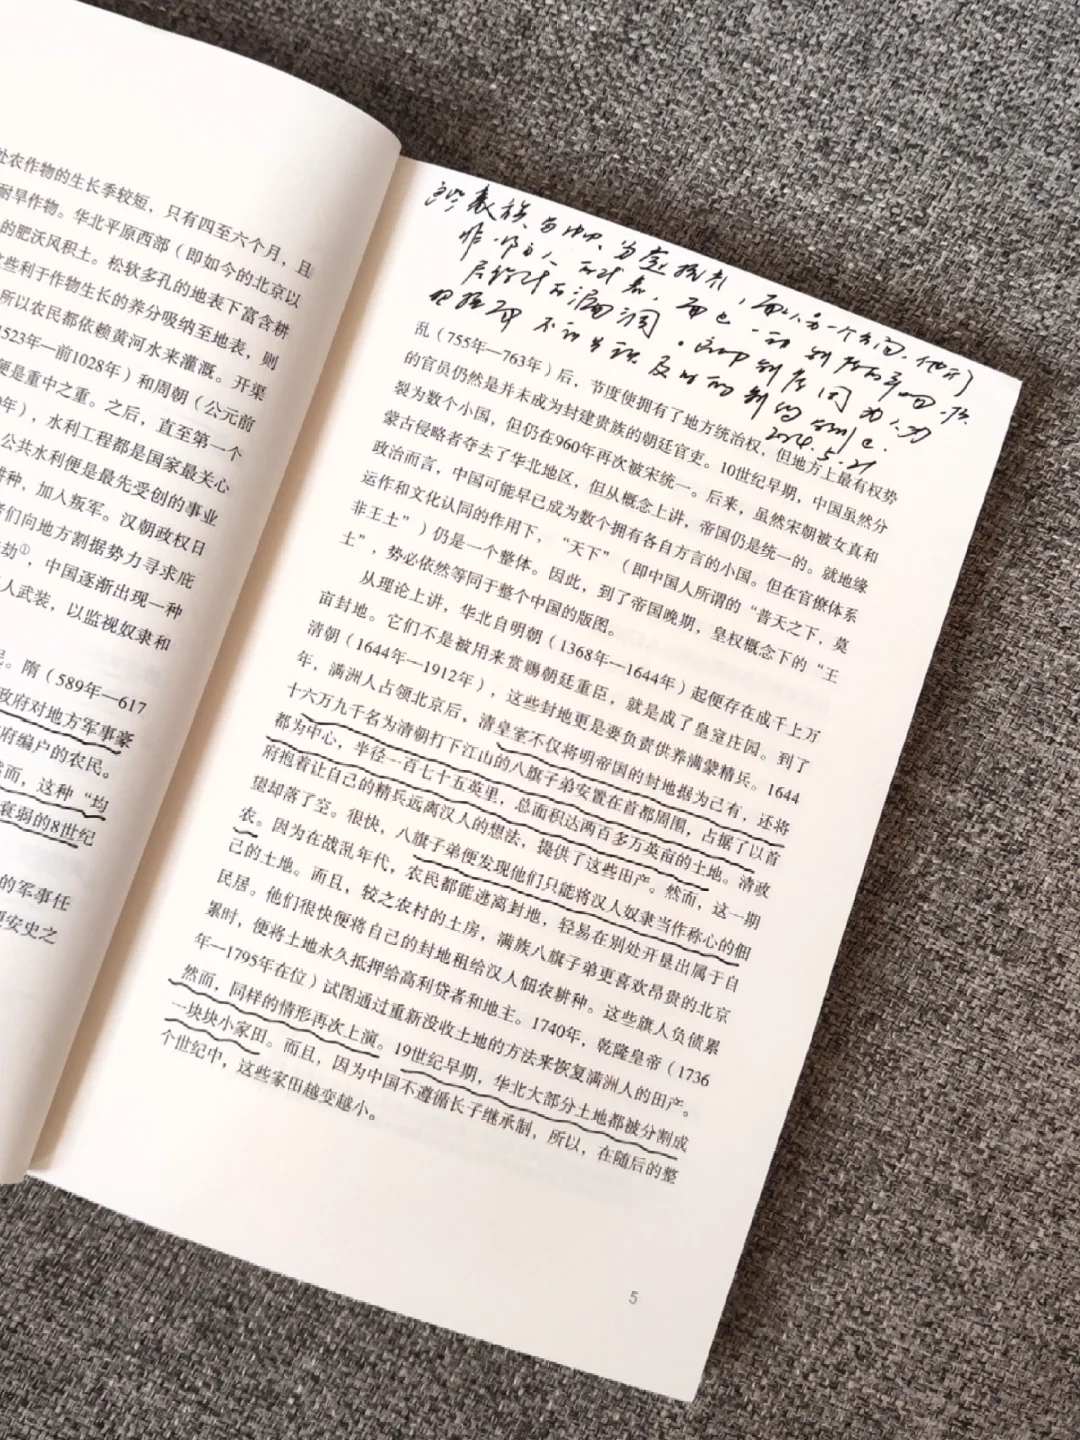 处农作物的生长季较短，只有四至六个月，且
耐旱作物。华北平原西部（即如今的北京以
的肥沃风积土。松软多孔的地表下富含耕
这些利于作物生长的养分吸纳至地表，则
所以农民都依赖黄河水来灌溉。开渠
1523年—前1028年）和周朝（公元前
便是重中之重。之后，直至第一个
年），水利工程都是国家最关心
公共水利便是最先受创的事业
耕种，加入叛军。汉朝政权日
者们向地方割据势力寻求庇
劫①，中国逐渐出现一种
人武装，以监视奴隶和
民。隋（589年—617
政府对地方军事豪
府编户的农民。
然而，这种“均
衰弱的8世纪
的军事任
安史之
这些表族
而从另一个方面，他们
制度
不
2024.5.21
乱（755年—763年）后，节度使拥有了地方统治权，但地方上最有权势
的官员仍然是并未成为封建贵族的朝廷官吏。10世纪早期，中国虽然分
裂为数个小国，但仍在960年再次被宋统一。后来，虽然宋朝被女真和
蒙古侵略者夺去了华北地区，但从概念上讲，帝国仍是统一的。就地缘
政治而言，中国可能早已成为数个拥有各自方言的小国。但在官僚体系
运作和文化认同的作用下，“天下”（即中国人所谓的“普天之下，莫
非王土”）仍是一个整体。因此，到了帝国晚期，皇权概念下的“王
土”，势必依然等同于整个中国的版图。
从理论上讲，华北自明朝（1368年—1644年）起便存在成千上万
亩封地。它们不是被用来赏赐朝廷重臣，就是成了皇室庄园。到了
清朝（1644年—1912年），这些封地更是要负责供养满蒙精兵。1644
年，满洲人占领北京后，清皇室不仅将明帝国的封地据为己有，还将
十六万九千名为清朝打下江山的八旗子弟安置在首都周围，占据了以首
都为中心，半径一百七十五英里，总面积达两百多万英亩的土地。清政
府抱着让自己的精兵远离汉人的想法，提供了这些田产。然而，这一期
望却落了空。很快，八旗子弟便发现他们只能将汉人奴隶当作称心的佃
农。因为在战乱年代，农民都能逃离封地，轻易在别处开垦出属于自
己的土地。而且，较之农村的土房，满族八旗子弟更喜欢昂贵的北京
民居。他们很快便将自己的封地租给汉人佃农耕种。这些旗人负债累
累时，便将土地永久抵押给高利贷者和地主。1740年，乾隆皇帝（1736
年—1795年在位）试图通过重新没收土地的方法来恢复满洲人的田产。
然而，同样的情形再次上演。19世纪早期，华北大部分土地都被分割成
一块块小家田。而且，因为中国不遵循长子继承制，所以，在随后的整
个世纪中，这些家田越变越小。
5